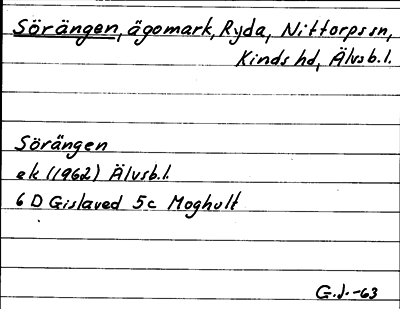 Sörängen, ägomark, Ryda, Nittorps sn,
Kinds hd, Älvsb.l.
Sörängen
ek (1962) Älvsb.l.
6 D Gislaved 5c Moghult
G.J.-63